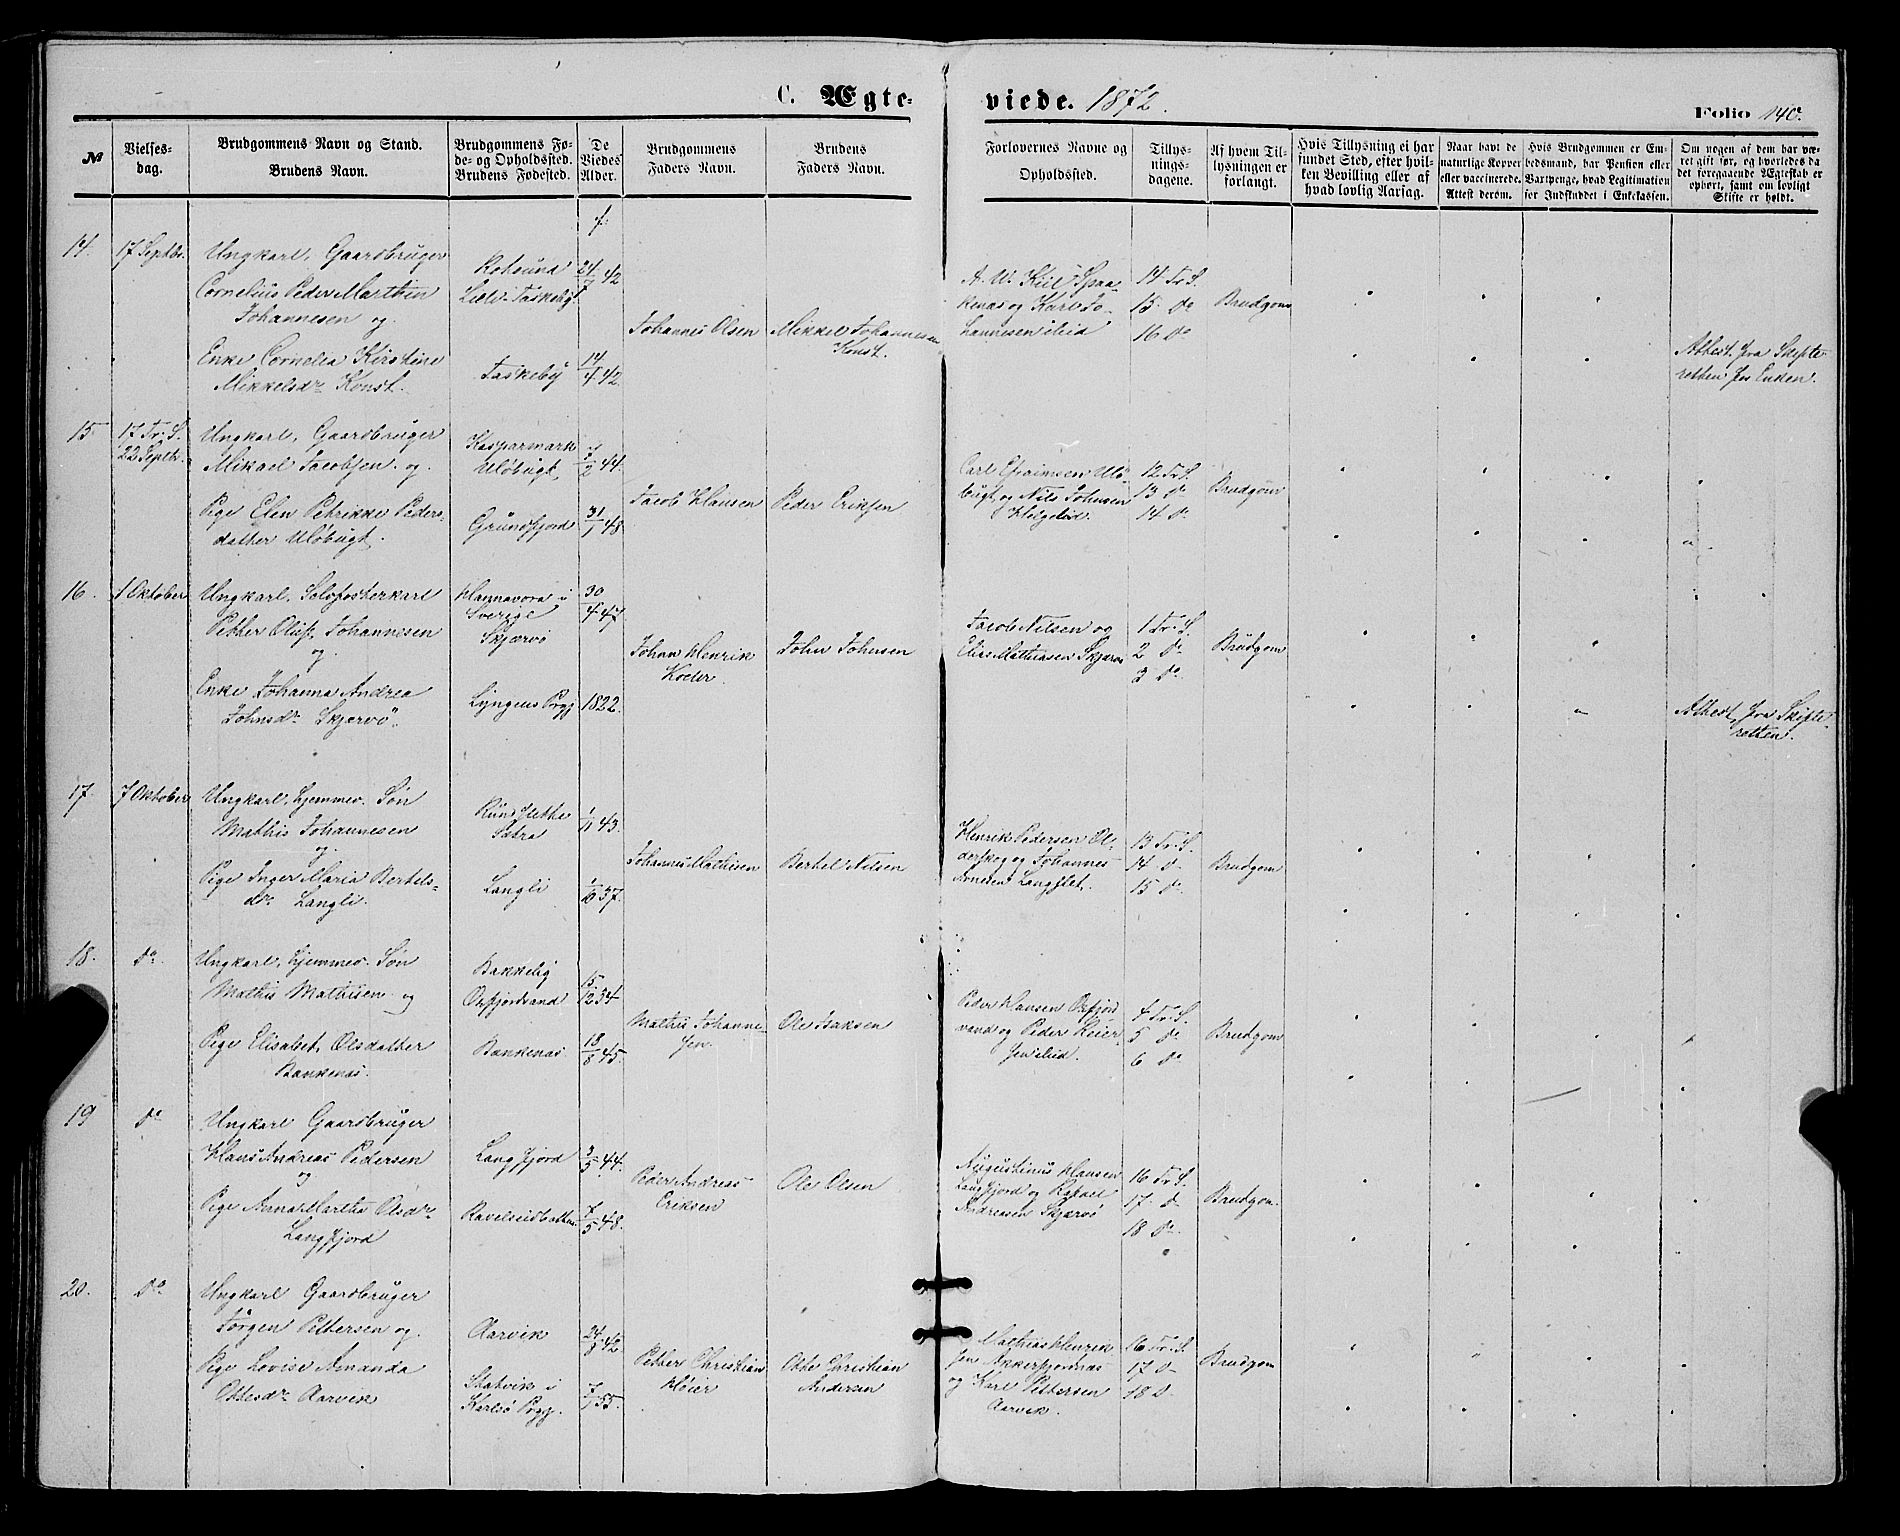 C. Ægte- viede. 1872.
Folio 140.
No
Vielses-
dag.
Brudgommens Navn og Stand.
Brudens Navn.
Brudgommens Fø-
de- og Opholdssted.
Brudens Fødested.
De
Viedes
Alder.
Brudgommens
Faders Navn.
Brudens
Faders Navn.
Forlovernes Navne og
Opholdssted.
Tillys-
nings-
dagene.
Af hvem Til-
lysningen er
forlangt.
Hvis Tillysning ei har
fundet Sted, efter hvil-
ken Bevilling eller af
hvad lovlig Aarsag.
Naar havt de
naturlige Kopper
eller vaccinerede.
Attest derom.
Hvis Brudgommen er Em-
bedsmand, har Pension eller
Vartpenge, hvad Legitimation
for Indskuddet i Enkekassen.
Om nogen af dem har væ-
ret gift før, og hvorledes da
det foregaaende Ægteskab er
ophørt, samt om lovligt
Skifte er holdt.
f.
14.
17 Septbr.
Ungkarl, Gaardbruger
Cornelius Peder Marthin
Johannesen og
Enke Cornelia Kirstine
Mikkelsdr Konst.
Rotsund
Taskeby
Taskeby
24/7 42
14/4 42
Johannes Olsen
Mikkel Johannesen
Konst.
A. W. Kiil Spaa-
kenæs og Karl Jo-
hannesen
14 Tr. S.
15 do
16 do
Brudgom
Athest fra Skifte-
retten for Enken.
15
17 Tr. S.
22 Septbr.
Ungkarl, Gaardbruger
Mikael Jacobsen og
Pige Elen Petrikke Peders-
datter Uløbugt.
Kasparmark
Uløbugt
Grundfjord
7/2 44
31/1 48
Jacob Hansen
Peder Eriksen
Carl Efraimsen Ulö-
bugt og Nils Johnsen
Helgelid.
12 Tr. S.
13 do
14 do
Brudgom
16.
1 Oktober
Ungkarl,
Petter Oluf Johannesen
og
Enke Johanna Andrea
Johnsdr Skjervö.
Hannavora i
Sverige
Skjærvö
Lyngens Prgj
30/4 47
1822.
Johan Henrik
John Johnsen
Jacob Nilsen og
Elias Mathiasen Skjærvö
1 Tr. S.
2 do
3 do
Brudgom
Athest fra Skifte-
retten.
17.
7 Oktober
Ungkarl, hjemmev. Søn
Mathis Johannesen
og
Pige Inger Maria Bertels-
dr. Langli.
Langli
1/11 43.
1/10 37.
Johannes Mathisen
Bertel Nilsen
Henrik Pedersen Ol-
derskog og Johannes
Arnesen Langslet.
13 Tr. S.
14 do
15 do
Brudgom
18.
do
Ungkarl, hjemmev. Søn
Mathis Mathisen og
Pige Elisabet Olsdatter
Bankenæs.
Bakkeby
Oxfjordvand
Bankenæs
15/12 34
18/8 45.
Mathis Johanne-
sen.
Ole Isaksen
Peder Hansen Oxfjord
vand og Peder Heier-
4 Tr. S.
5 do
6 do
Brudgom
19
do
Ungkarl Gaardbruger
Hans Andreas Pedersen
og
Pige Anna Martha Olsdr
Langfjord
Langfjord
Ravelseidbotten
3/5 44.
7/5 48.
Peder Andreas
Eriksen
Ole Olsen
Augustinus Hansen
Langfjord og Rafael
Andreasen Skjærvö
16 Tr. S.
17 do
18 do
Brudgom
20.
do
Ungkarl Gaardbruger
Jörgen Pettersen og
Pige Lovise Amanda
Ottesdr Aarvik
Aarvik
Statvik i
Karlsö Prgj.
42.
7/1 55.
Petter Christian
Höier
Otto Christian
Andersen
Mathias Henrik
sen Akkerfjordnæs
og Karl Pettersen
Aarvik.
16 Tr. S.
17 D
18 D
Brudgom